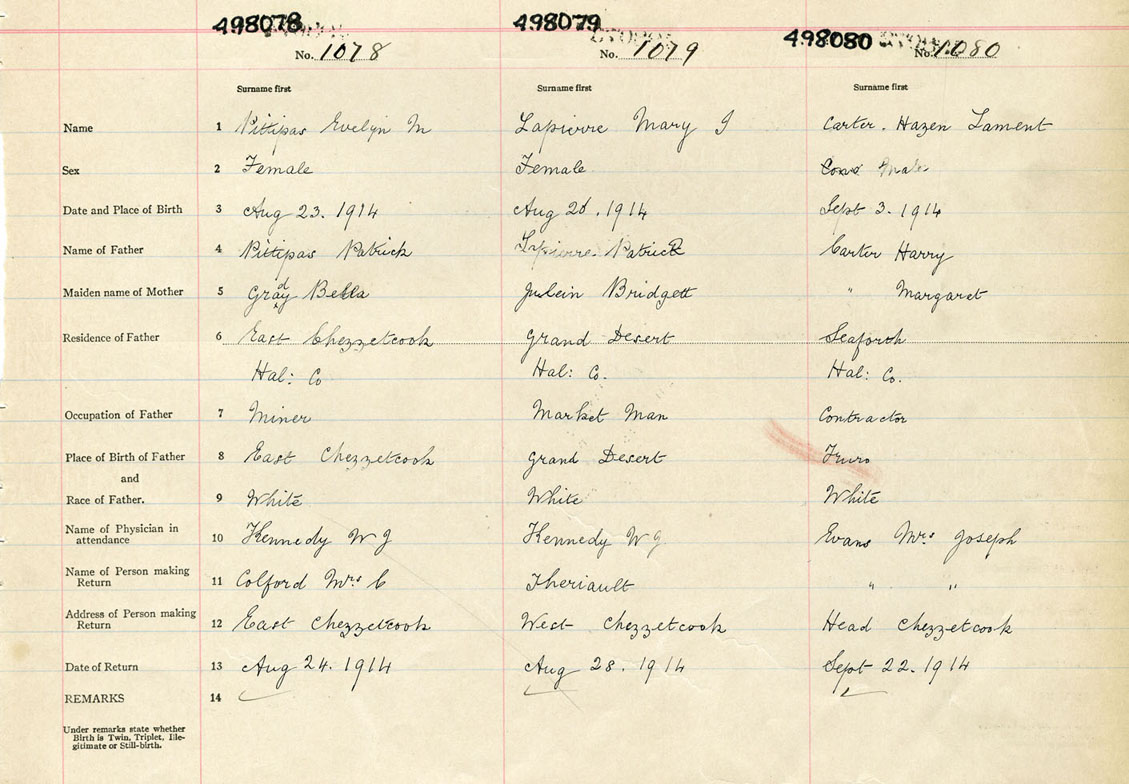 498078 498079 498080
No. 1078 No. 1079 No. 1080
Surname first Surname first Surname first
Name 1 Pittipas Evelyn M Lapierre Mary J Carter. Hazen Lament
Sex 2 Female Female Male
Date and Place of Birth 3 Aug 23. 1914 Aug 1914 Sept 3. 1914
Name of Father 4 Pittipas Patrick Lapierre Patrick Carter Harry
Maiden name of Mother 5 Bella Julein Bridgett " Margaret
Residence of Father 6 East Chezzetcook Grand Desert Seaforth
Hal: Co Hal: Co. Hal: Co.
Occupation of Father 7 Miner Market Man Contractor
Place of Birth of Father 8 East Chezzetcook Grand Desert Truro
and
Race of Father. 9 White White White
Name of Physician in
attendance 10 Kennedy W J Kennedy W J Evans Mrs Joseph
Name of Person making
Return 11 Colford Mrs C Theriault " "
Address of Person making
Return 12 East Chezzetcook West Chezzetcook Head Chezzetcook
Date of Return 13 Aug 24. 1914 Aug 28. 1914 Sept 22. 1914
REMARKS 14
Under remarks state whether
Birth is Twin, Triplet, Ille-
gitimate or Still-birth.